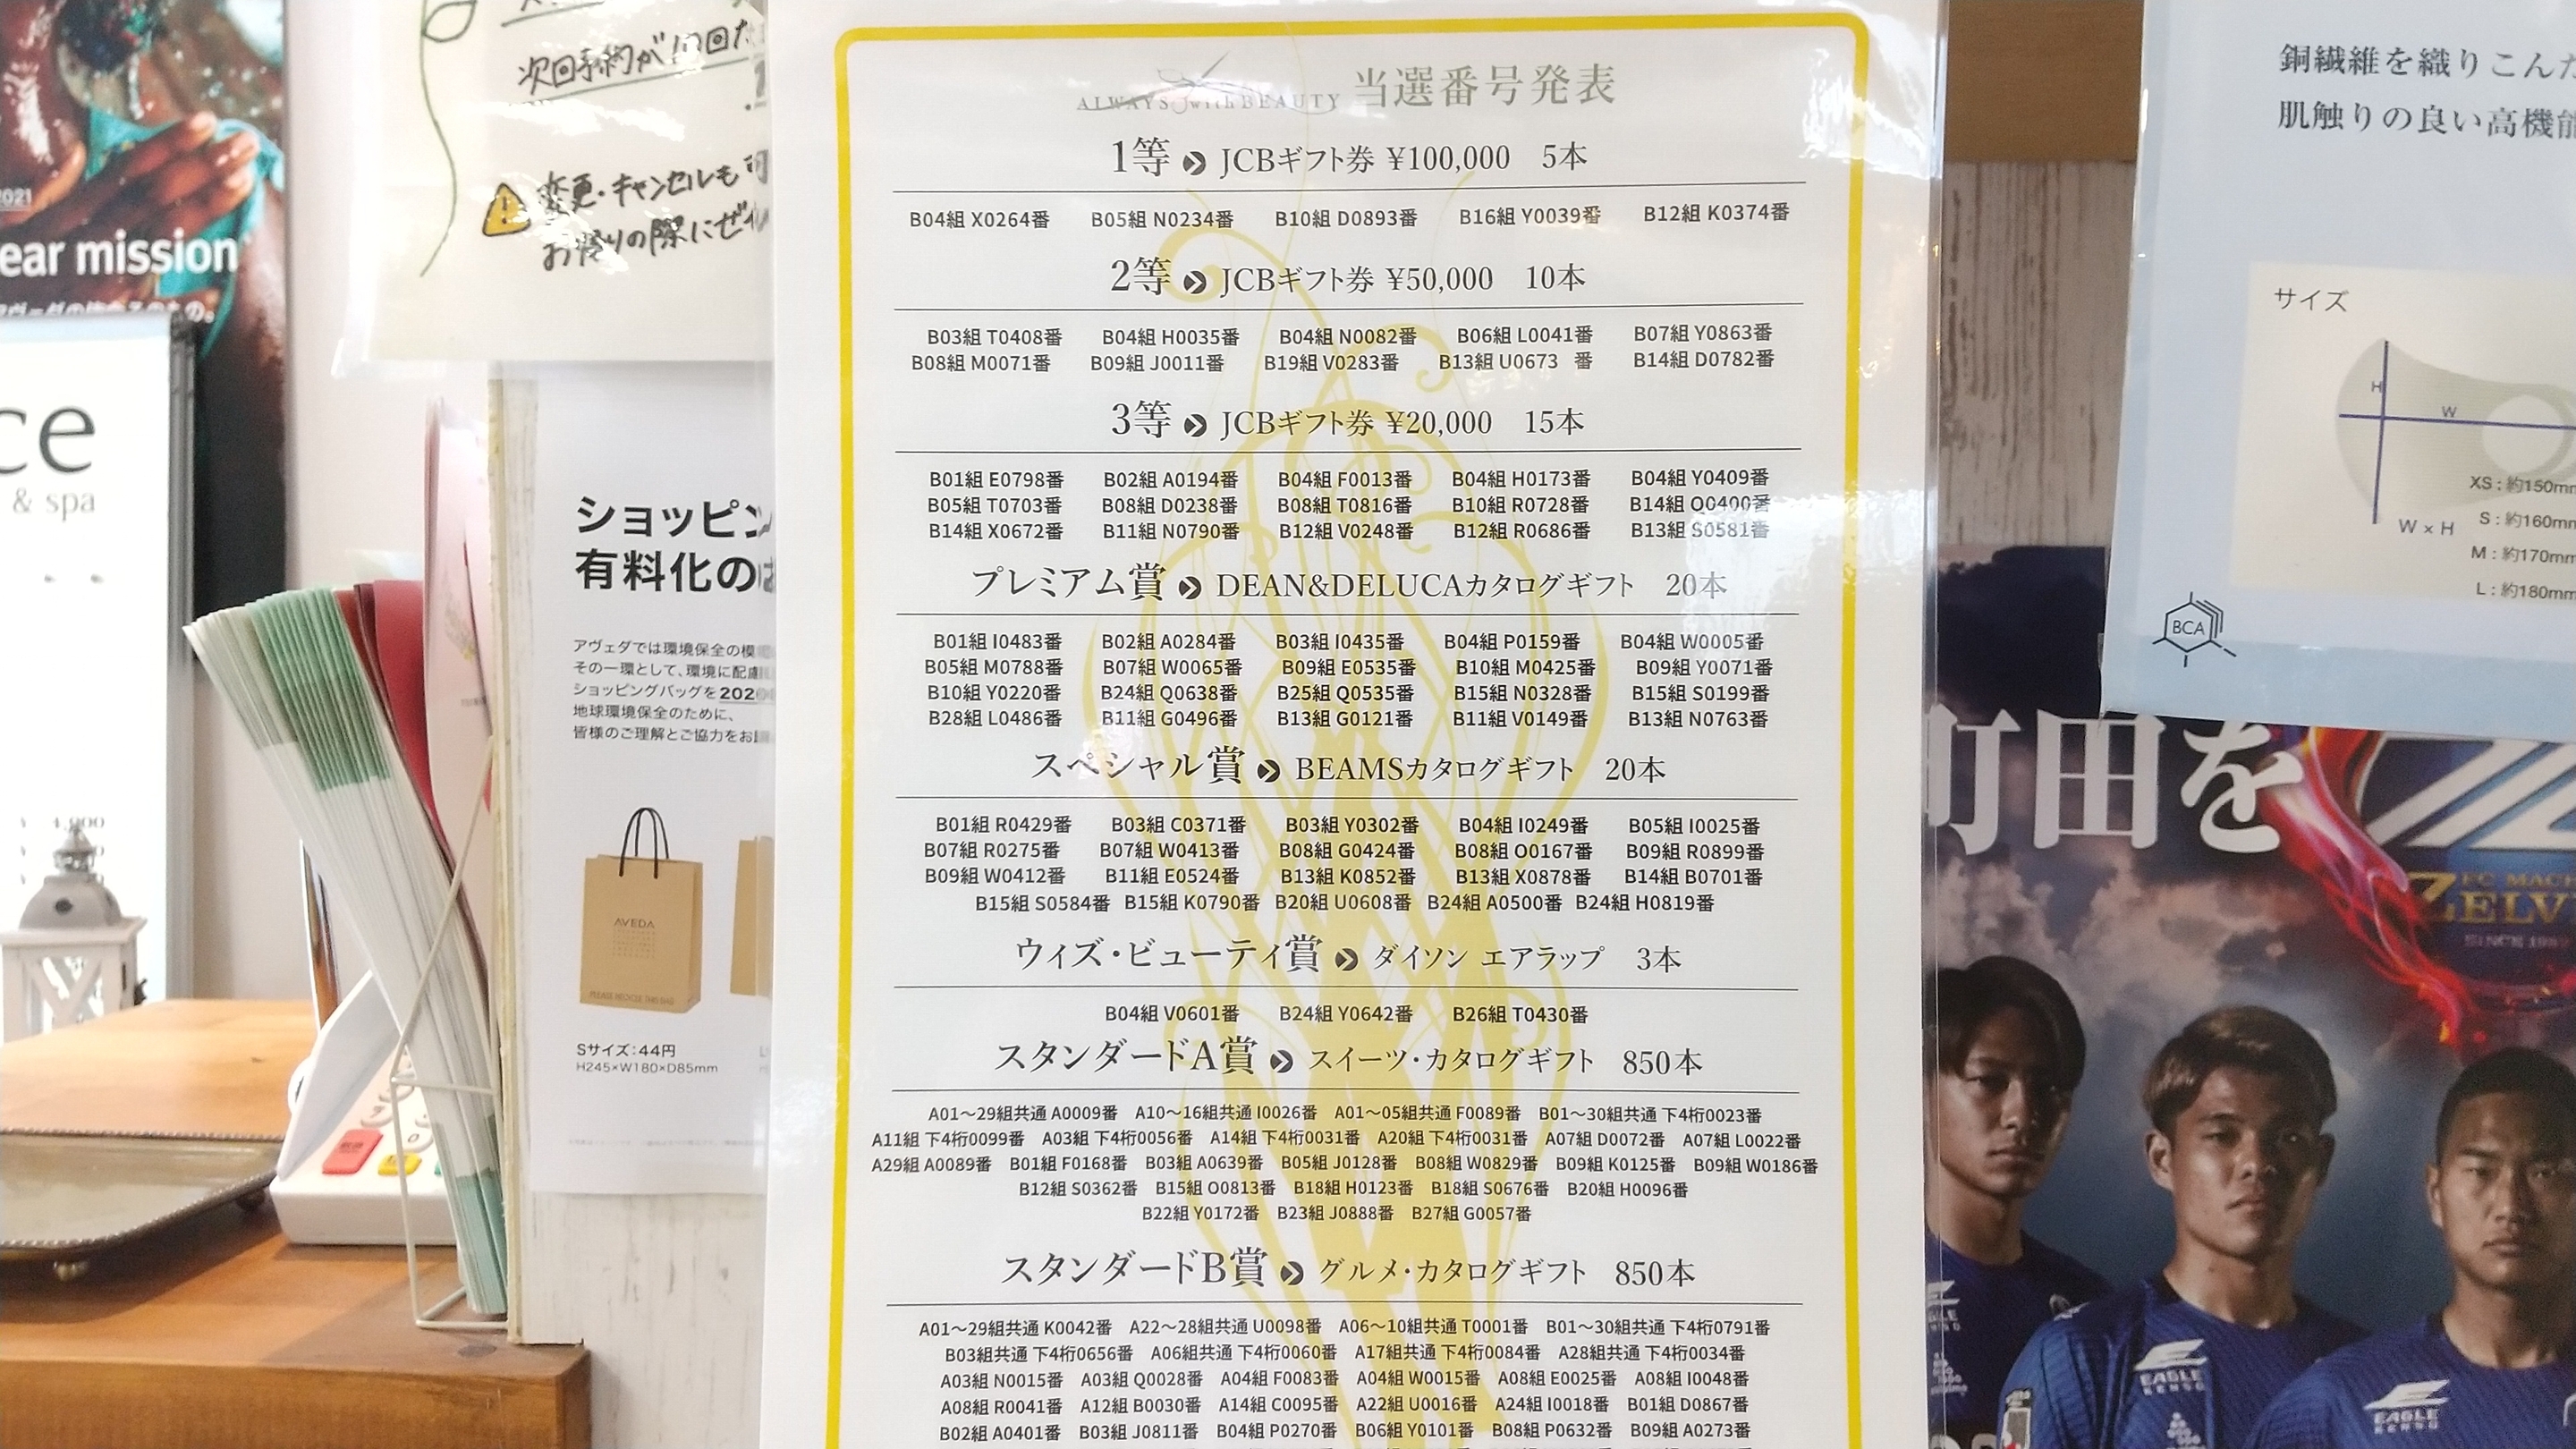 2021
ear mission
ce
& spa
4,900
次回予約が10回た
変更・キャンセルも可
お帰りの際にぜひ
ショッピン
有料化のお
アヴェダでは環境保全の模
その一環として、環境に配慮
ショッピングバッグを2020
地球環境保全のために、
皆様のご理解とご協力をお
AVEDA
PLEASE RECYCLE THIS BAG
Sサイズ:44円
H245×W180×D85mm
ALWAYS with BEAUTY 当選番号発表
1等 JCBギフト券 ¥100,000 5本
B04組 X0264番 B05組 N0234番 B10組 D0893番 B16組 Y0039番 B12組 K0374番
2等 JCBギフト券 ¥50,000 10本
B03組 T0408番 B04組 H0035番 B04組 N0082番 B06組 L0041番 B07組 Y0863番
B08組 M0071番 B09組 J0011番 B19組 V0283番 B13組 U0673 番 B14組 D0782番
3等 JCBギフト券 ¥20,000 15本
B01組 E0798番 B02組 A0194番 B04組 F0013番 B04組 H0173番 B04組 Y0409番
B05組 T0703番 B08組 D0238番 B08組 T0816番 B10組 R0728番 B14組 Q0400番
B14組 X0672番 B11組 N0790番 B12組 V0248番 B12組 R0686番 B13組 S0581番
プレミアム賞 DEAN&DELUCAカタログギフト 20本
B01組 I0483番 B02組 A0284番 B03組 I0435番 B04組 P0159番 B04組 W0005番
B05組 M0788番 B07組 W0065番 B09組 E0535番 B10組 M0425番 B09組 Y0071番
B10組 Y0220番 B24組 Q0638番 B25組 Q0535番 B15組 N0328番 B15組 S0199番
B28組 L0486番 B11組 G0496番 B13組 G0121番 B11組 V0149番 B13組 N0763番
スペシャル賞 BEAMSカタログギフト 20本
B01組 R0429番 B03組 C0371番 B03組 Y0302番 B04組 I0249番 B05組 I0025番
B07組 R0275番 B07組 W0413番 B08組 G0424番 B08組 O0167番 B09組 R0899番
B09組 W0412番 B11組 E0524番 B13組 K0852番 B13組 X0878番 B14組 B0701番
B15組 S0584番 B15組 K0790番 B20組 U0608番 B24組 A0500番 B24組 H0819番
ウィズ・ビューティ賞 ダイソン エアラップ 3本
B04組 V0601番 B24組 Y0642番 B26組 T0430番
スタンダードA賞 スイーツ・カタログギフト 850本
A01〜29組共通 A0009番 A10〜16組共通 I0026番 A01〜05組共通 F0089番 B01〜30組共通 下4桁0023番
A11組 下4桁0099番 A03組 下4桁0056番 A14組 下4桁0031番 A20組 下4桁0031番 A07組 D0072番 A07組 L0022番
A29組 A0089番 B01組 F0168番 B03組 A0639番 B05組 J0128番 B08組 W0829番 B09組 K0125番 B09組 W0186番
B12組 S0362番 B15組 O0813番 B18組 H0123番 B18組 S0676番 B20組 H0096番
B22組 Y0172番 B23組 J0888番 B27組 G0057番
スタンダードB賞 グルメ・カタログギフト 850本
A01〜29組共通 K0042番 A22〜28組共通 U0098番 A06〜10組共通 T0001番 B01〜30組共通 下4桁0791番
B03組共通 下4桁0656番 A06組共通 下4桁0060番 A17組共通 下4桁0084番 A28組共通 下4桁0034番
A03組 N0015番 A03組 Q0028番 A04組 F0083番 A04組 W0015番 A08組 E0025番 A08組 I0048番
A08組 R0041番 A12組 B0030番 A14組 C0095番 A22組 U0016番 A24組 I0018番 B01組 D0867番
B02組 A0401番 B03組 J0811番 B04組 P0270番 B06組 Y0101番 B08組 P0632番 B09組 A0273番
銅繊維を織りこんだ
肌触りの良い高機能
サイズ
H
W
W × H
XS : 約150mm
S : 約160mm
M : 約170mm
L : 約180mm
BCA
町田を
FC MACH
ZELV
EAGLE
KENSO
EAGLE
KENSO